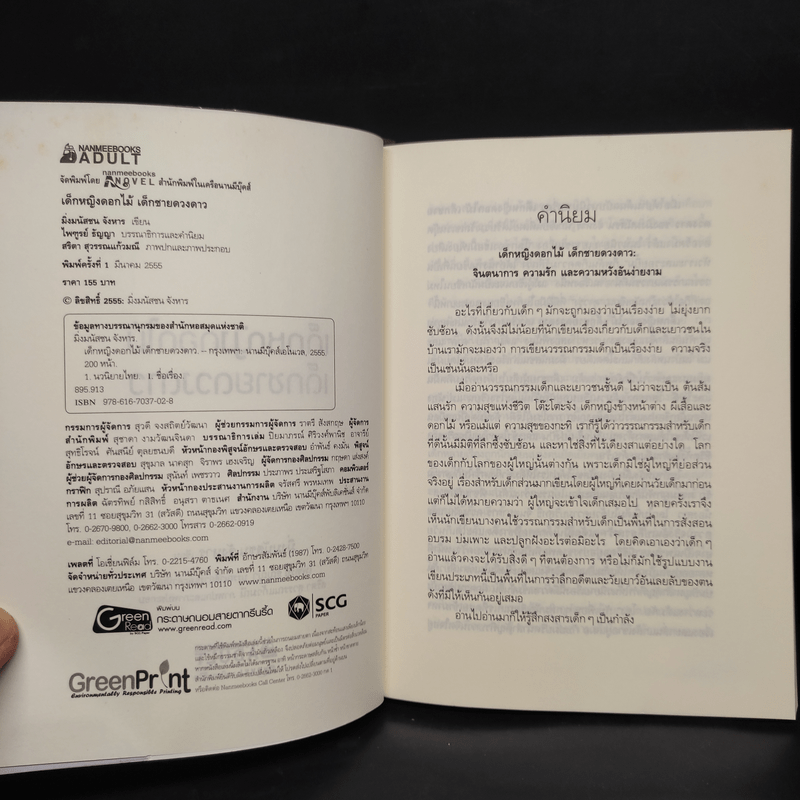 NANMEEBOOKS
ADULT
nanmeebooks
จัดพิมพ์โดย NOVEL สำนักพิมพ์ในเครือนานมีบุ๊คส์
เด็กหญิงดอกไม้ เด็กชายดวงดาว
มิ่งมนัสชน จังหาร เขียน
ไพฑูรย์ ธัญญา บรรณาธิการและคำนิยม
สริตา สุวรรณแก้วมณี ภาพปกและภาพประกอบ
พิมพ์ครั้งที่ 1 มีนาคม 2555
ราคา 155 บาท
© ลิขสิทธิ์ 2555: มิ่งมนัสชน จังหาร
ข้อมูลทางบรรณานุกรมของสำนักหอสมุดแห่งชาติ
มิ่งมนัสชน จังหาร.
เด็กหญิงดอกไม้ เด็กชายดวงดาว. – กรุงเทพฯ: นานมีบุ๊คส์เอโนเวล, 2555.
200 หน้า.
1. นวนิยายไทย. I. ชื่อเรื่อง.
895.913
ISBN 978-616-7037-02-8
กรรมการผู้จัดการ สุวดี จงสถิตย์วัฒนา ผู้ช่วยกรรมการผู้จัดการ ราตรี สังสกฤษ ผู้จัดการ
สำนักพิมพ์ สุชาดา งามวัฒนจินดา บรรณาธิการเล่ม ปิยมาภรณ์ ศิริวงศ์พานิช อาจารีย์
สุทธิโรจน์ ศันสนีย์ ตุลยธนบดี หัวหน้ากองพิสูจน์อักษรและตรวจสอบ อำพันธ์ คงมั่น พิสูจน์
อักษรและตรวจสอบ สุขุมาล นาคสุก จิราพร เฮงเจริญ ผู้จัดการกองศิลปกรรม
ผู้ช่วยผู้จัดการกองศิลปกรรม สุนันท์ เพชรวาว ศิลปกรรม ประภาพร ประเสริฐโสภา คอมพิวเตอร์
กราฟิก สุปราณี อภัยแสน หัวหน้ากองประสานงานการผลิต จรัสศรี พรหมเทพ ประสานงาน
การผลิต ฉัตรทิพย์ กสิสิทธิ์ อนุสรา ตาธเนศ สำนักงาน บริษัท นานมีบุ๊คส์พับลิเคชันส์ จำกัด
เลขที่ 11 ซอยสุขุมวิท 31 (สวัสดี) ถนนสุขุมวิท แขวงคลองเตยเหนือ เขตวัฒนา กรุงเทพฯ 10110
โทร. 0-2670-9800, 0-2662-3000 โทรสาร 0-2662-0919
e-mail: editorial@nanmeebooks.com
เพลตที่ โอเชี่ยนฟิล์ม โทร. 0-2215-4760 พิมพ์ที่ อักษรสัมพันธ์ (1987) โทร. 0-2428-7500
จัดจำหน่ายทั่วประเทศ บริษัท นานมีบุ๊คส์ จำกัด เลขที่ 11 ซอยสุขุมวิท 31 (สวัสดี) ถนนสุขุมวิท
แขวงคลองเตยเหนือ เขตวัฒนา กรุงเทพฯ 10110 www.nanmeebooks.com
Green Read
พิมพ์บน
กระดาษถนอมสายตากรีนรี้ด
www.greenread.com
SCG
PAPER
GreenPrint
Environmentally Responsible Printing
หรือติดต่อ Nanmeebooks Call Center โทร. 0-2662-3000 กด 1
คำนิยม
เด็กหญิงดอกไม้ เด็กชายดวงดาว:
จินตนาการ ความรัก และความหวังอันง่ายงาม
อะไรที่เกี่ยวกับเด็ก ๆ มักจะถูกมองว่าเป็นเรื่องง่าย ไม่ยุ่งยาก
ซับซ้อน ดังนั้นจึงมีไม่น้อยที่นักเขียนเรื่องเกี่ยวกับเด็กและเยาวชนใน
บ้านเรามักจะมองว่า การเขียนวรรณกรรมเด็กเป็นเรื่องง่าย ความจริง
เป็นเช่นนั้นละหรือ
เมื่ออ่านวรรณกรรมเด็กและเยาวชนชั้นดี ไม่ว่าจะเป็น ต้นส้ม
แสนรัก ความสุขแห่งชีวิต โต๊ะโตะจัง เด็กหญิงข้างหน้าต่าง ผีเสื้อและ
ดอกไม้ หรือแม้แต่ ความสุขของกะทิ เราก็รู้ได้ว่าวรรณกรรมสำหรับเด็ก
ที่ดีนั้นมีมิติที่ลึกซึ้งซับซ้อน และหาใช่สิ่งที่ไร้เดียงสาแต่อย่างใด โลก
ของเด็กกับโลกของผู้ใหญ่นั้นต่างกัน เพราะเด็กมิใช่ผู้ใหญ่ที่ย่อส่วน
จริงอยู่ เรื่องสำหรับเด็กส่วนมากเขียนโดยผู้ใหญ่ที่เคยผ่านวัยเด็กมาก่อน
แต่ก็ไม่ได้หมายความว่า ผู้ใหญ่จะเข้าใจเด็กเสมอไป หลายครั้งเราจึง
เห็นนักเขียนบางคนใช้วรรณกรรมสำหรับเด็กเป็นพื้นที่ในการสั่งสอน
อบรม บ่มเพาะ และปลูกฝังอะไรต่อมิอะไร โดยคิดเอาเองว่าเด็ก ๆ
อ่านแล้วคงจะได้รับสิ่งดี ๆ ที่ตนต้องการ หรือไม่ก็มักใช้รูปแบบงาน
เขียนประเภทนี้เป็นพื้นที่ในการรำลึกอดีตและวัยเยาว์อันเลยลับของตน
ดังที่มีให้เห็นกันอยู่เสมอ
อ่านไปอ่านมาก็ให้รู้สึกสงสารเด็ก ๆ เป็นกำลัง